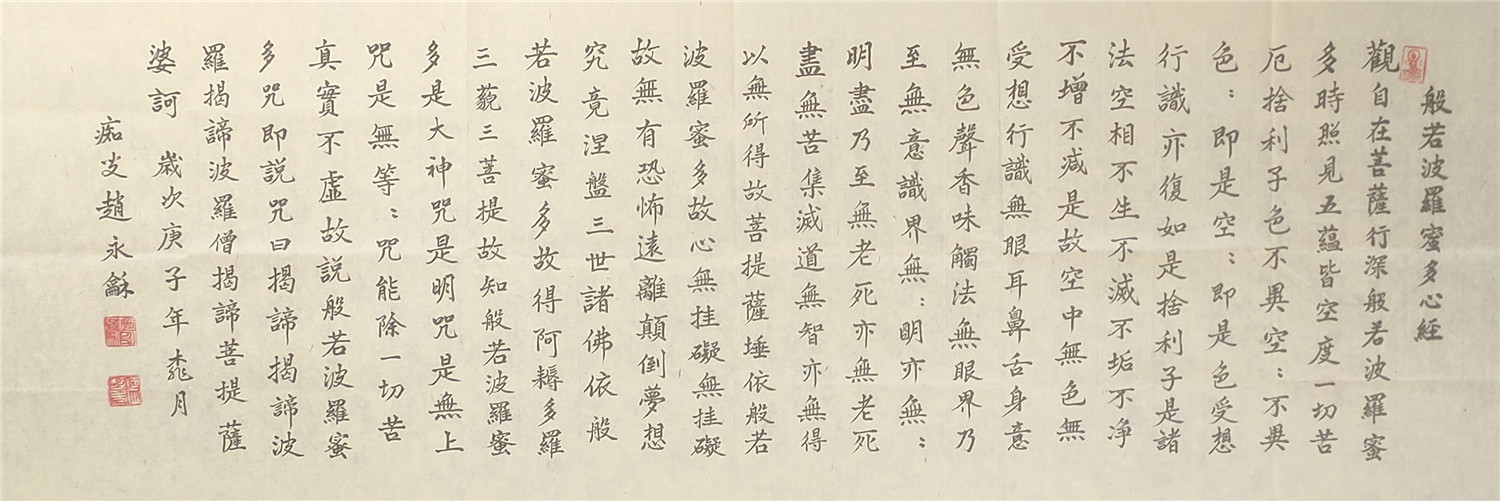 般若波羅蜜多心經
觀自在菩薩行深般若波羅蜜
多時照見五蘊皆空度一切苦
厄捨利子色不異空：不異
色：即是空：即是色受想
行識亦復如是捨利子是諸
法空相不生不滅不垢不净
不增不减是故空中無色無
受想行識無眼耳鼻舌身意
無色聲香味觸法無眼界乃
至無意識界無：明亦無：
明盡乃至無老死亦無老死
盡無苦集滅道無智亦無得
以無所得故菩提薩埵依般若
波羅蜜多故心無挂礙無挂礙
故無有恐怖遠離顛倒夢想
究竟涅盤三世諸佛依般
若波羅蜜多故得阿耨多羅
三藐三菩提故知般若波羅蜜
多是大神咒是明咒是無上
咒是無等：咒能除一切苦
真實不虛故説般若波羅蜜
多咒即説咒曰揭諦揭諦波
羅揭諦波羅僧揭諦菩提薩
婆訶 歲次庚子年桃月
痴叟趙永龢